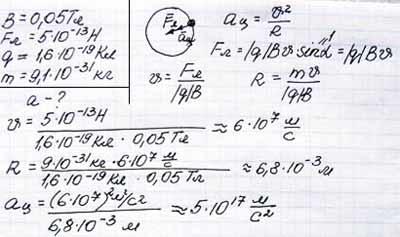 B = 0,05Тл
Fл = 5·10⁻¹³Н
q = 1,6·10⁻¹⁹Кл
m = 9,1·10⁻³¹кг
a - ?
Fл
aц
aц = v²/R
Fл = |q|Bv sinα = |q|Bv
1
v = Fл/|q|B
R = mv/|q|B
v = 5·10⁻¹³Н/1,6·10⁻¹⁹Кл · 0,05Тл ≈ 6·10⁷ м/с
R = 9·10⁻³¹кг · 6·10⁷ м/с/1,6·10⁻¹⁹Кл · 0,05Тл ≈ 6,8·10⁻³ м
aц = (6·10⁷)²м²/с²/6,8·10⁻³ м ≈ 5·10¹⁷ м/с²